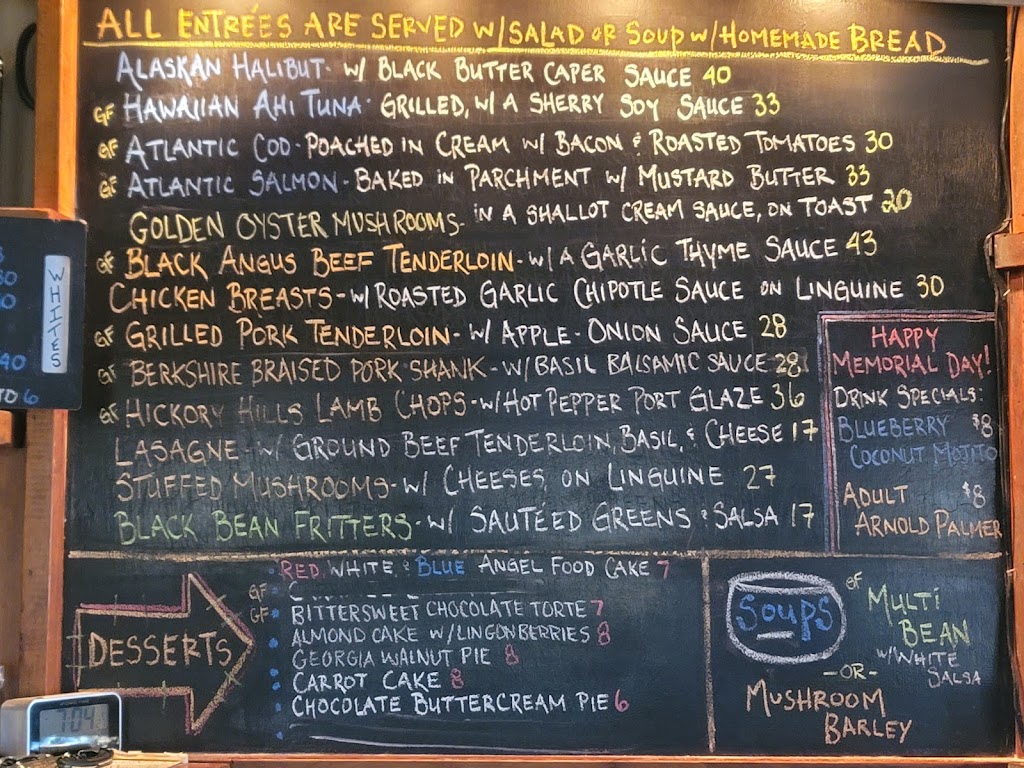 ALL ENTRÉES ARE SERVED W/SALAD OR SOUP W/HOMEMADE BREAD
ALASKAN HALIBUT - W/ BLACK BUTTER CAPER SAUCE 40
GF HAWAIIAN AHI TUNA - GRILLED, W/ A SHERRY SOY SAUCE 33
GF ATLANTIC COD - POACHED IN CREAM W/ BACON & ROASTED TOMATOES 30
GF ATLANTIC SALMON - BAKED IN PARCHMENT W/ MUSTARD BUTTER 33
GOLDEN OYSTER MUSHROOMS - IN A SHALLOT CREAM SAUCE, ON TOAST 20
GF BLACK ANGUS BEEF TENDERLOIN - W/ A GARLIC THYME SAUCE 43
CHICKEN BREASTS - W/ ROASTED GARLIC CHIPOTLE SAUCE ON LINGUINE 30
GF GRILLED PORK TENDERLOIN - W/ APPLE - ONION SAUCE 28
GF BERKSHIRE BRAISED PORK SHANK - W/ BASIL BALSAMIC SAUCE 28
GF HICKORY HILLS LAMB CHOPS - W/ HOT PEPPER PORT GLAZE 36
LASAGNE - W/ GROUND BEEF TENDERLOIN, BASIL, & CHEESE 17
STUFFED MUSHROOMS - W/ CHEESES, ON LINGUINE 27
BLACK BEAN FRITTERS - W/ SAUTÉED GREENS & SALSA 17
HAPPY
MEMORIAL DAY!
DRINK SPECIALS:
BLUEBERRY $8
COCONUT MOJITO
ADULT $8
ARNOLD PALMER
WHITES
40
TO 6
DESSERTS
RED, WHITE, & BLUE ANGEL FOOD CAKE 7
GF
GF BITTERSWEET CHOCOLATE TORTE 7
ALMOND CAKE W/ LINGONBERRIES 8
GEORGIA WALNUT PIE 8
CARROT CAKE 8
CHOCOLATE BUTTERCREAM PIE 6
SOUPS
GF MULTI
BEAN
W/ WHITE
SALSA
-OR-
MUSHROOM
BARLEY
7:04